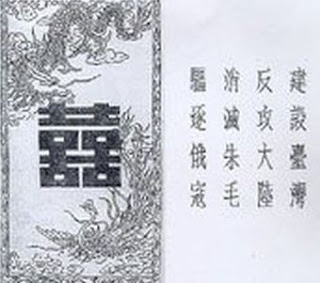 囍
建設臺灣
反攻大陸
消滅朱毛
驅逐俄寇